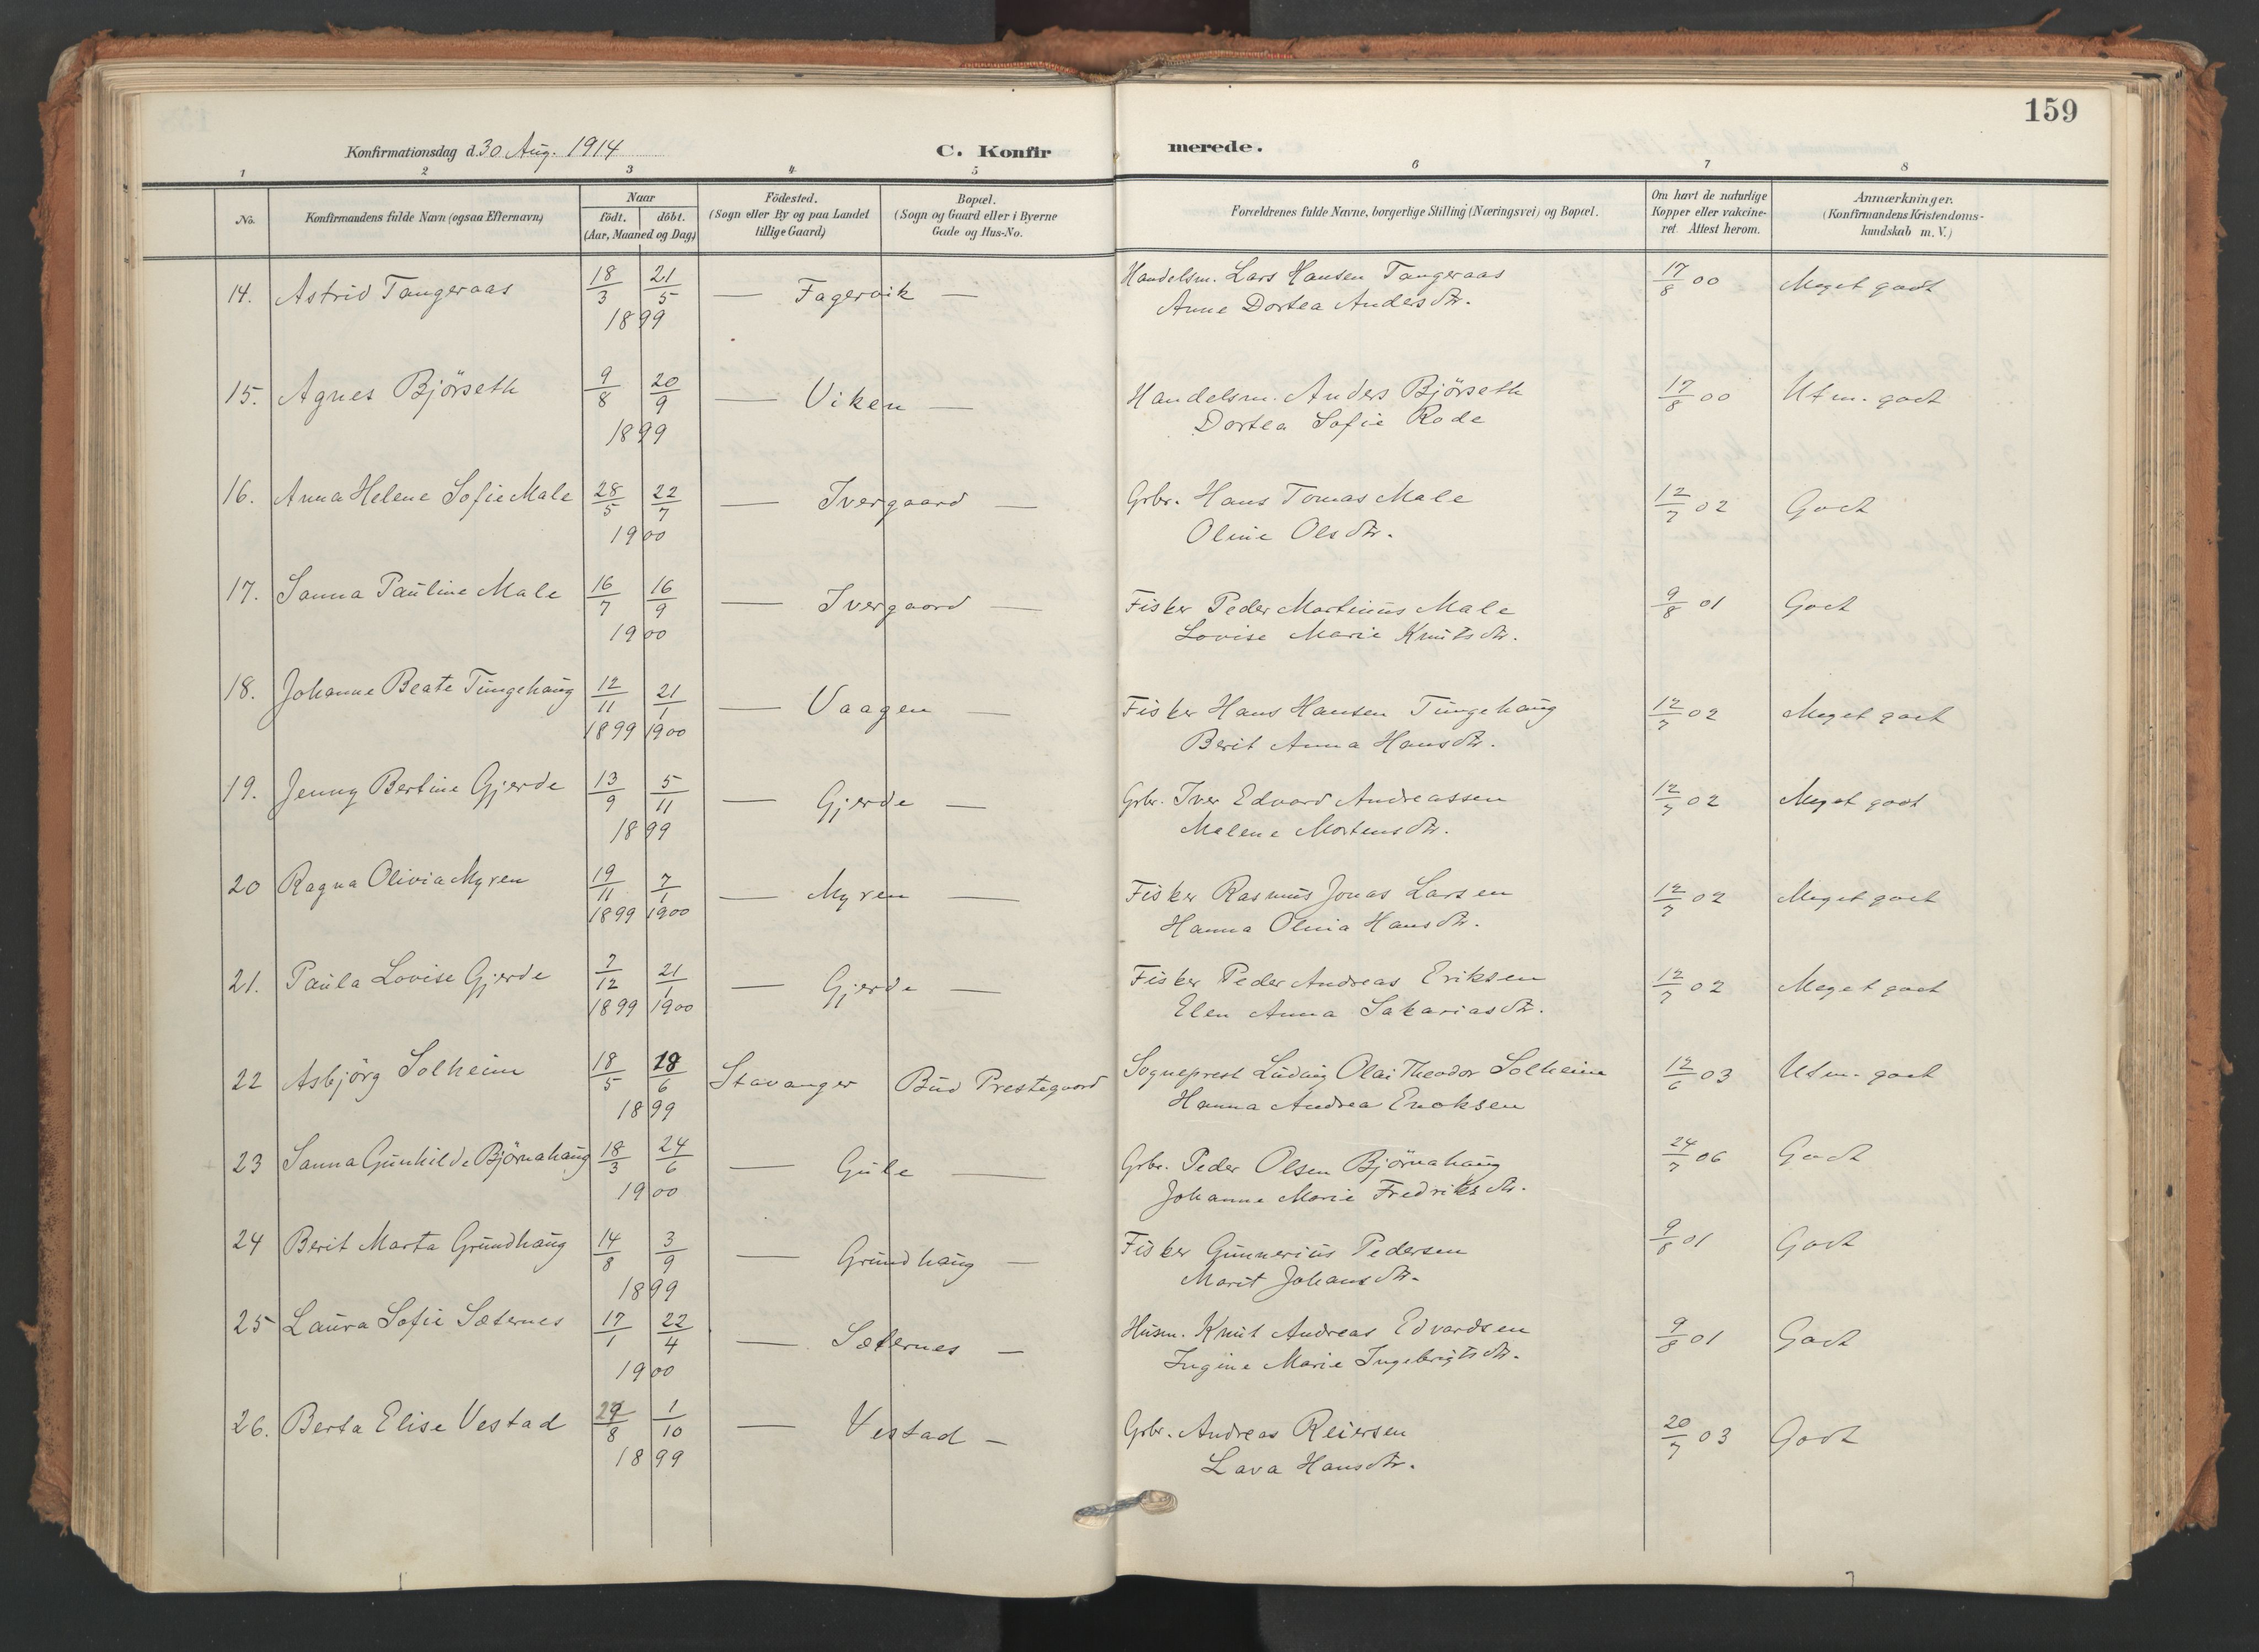 159
Konfirmationsdag d. 30 Aug. 1914
C. Konfirmerede.
1 2 3 4 5 6 7 8
No. Konfirmandens fulde Navn (ogsaa Efternavn) Naar födt. döbt. (Aar, Maaned og Dag) Födested. (Sogn eller By og paa Landet tillige Gaard) Bopæl. (Sogn og Gaard eller i Byerne Gade og Hus-No. Forældrenes fulde Navne, borgerlige Stilling (Næringsvei) og Bopæl. Om havt de naturlige Kopper eller vakcineret. Attest herom. Anmærkninger. (Konfirmandens Kristendomskundskab m. V.)
14. Astrid Tangeraas 18/3 21/5 — Fagervik — Handelsm. Lars Hansen Tangeraas 17/8 00 Meget godt
1899 Anne Dortea Andersdtr.
15. Agnes Björseth 9/8 20/9 — Viken — Handelsm. Anders Björseth 17/8 00 Utm. godt
1899 Dortea Sofie Rode
16. Anna Helene Sofie Male 28/5 22/7 — Ivergaard — Grbr. Hans Tomas Male 12/7 02 Godt
1900 Oline Olsdtr.
17. Sanna Pauline Male 16/7 16/9 — Ivergaard — Fisker Peder Martinus Male 9/8 01 Godt
1900 Lovise Marie Knutsdtr.
18. Johanne Beate Tungehaug 12/11 21/1 — Vaagen — Fisker Hans Hansen Tungehaug 12/7 02 Meget godt
1899 1900 Berit Anna Hansdtr.
19. Jenny Bertine Gjerde 13/9 5/11 — Gjerde — Grbr. Iver Edvard Andreassen 12/7 02 Meget godt
1899 Malene Mortensdtr.
20 Ragna Olivia Myren 19/11 7/1 — Myren — Fisker Rasmus Jonas Larsen 12/7 02 Meget godt
1899 1900 Hanna Olivia Hansdtr.
21. Paula Lovise Gjerde 7/12 21/1 — Gjerde — Fisker Peder Andreas Eriksen 12/7 02 Meget godt
1899 1900 Elen Anna Sakariasdtr.
22 Asbjörg Solheim 18/5 18/6 Stavanger Bud Prestegaard Sogneprest Ludvig Olai Theodor Solheim 12/6 03 Utm. godt
1899 Hanna Andrea Enoksen
23 Sanna Gunhilde Björnahaug 18/3 24/6 — Gule — Grbr. Peder Olsen Björnahaug 24/7 06 Godt
1900 Johanne Marie Fredriksdtr.
24 Berit Marta Grundhaug 14/8 3/9 — Grundhaug — Fisker Gunnerius Pedersen 9/8 01 Godt
1899 Marit Johansdtr.
25 Laura Sofie Sæternes 17/1 22/4 — Sæternes — Husm. Knut Andreas Edvardsen 9/8 01 Godt
1900 Ingine Marie Ingebrigtsdtr.
26. Berta Elise Vestad /8 1/10 — Vestad — Grbr. Andreas Reiersen 20/7 03 Godt
1899 Lava Hansdtr.